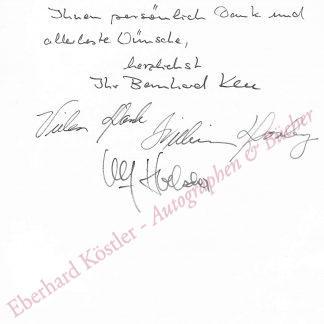 Ihnen persönlich Dank und
allerbeste Wünsche,
herzlichst
Ihr Bernhard
Vielen Dank
Eberhard Köstler - Autographen & Bücher